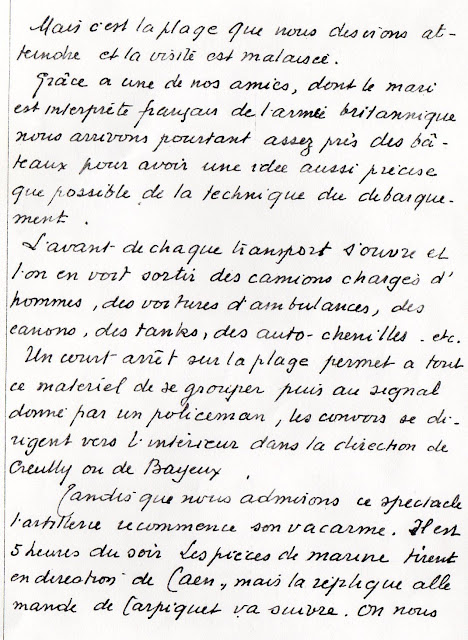 Mais c'est la plage que nous desirons at-
teindre et la visite est malaisée.
Grâce a une de nos amies, dont le mari
est interprète français de l'armée britannique
nous arrivons pourtant assez près des bâ-
teaux pour avoir une idee aussi precise
que possible de la technique du debarque-
ment.
L'avant de chaque transport s'ouvre et
l'on en voit sortir des camions chargés d'
hommes, des voitures d'ambulances, des
canons, des tanks, des auto-chenilles. etc.
Un court arrêt sur la plage permet a tout
ce materiel de se grouper puis au signal
donné par un policeman, les convois se di-
rigent vers l'intérieur dans la direction de
Creully ou de Bayeux.
Tandis que nous admirons ce spectacle
l'artillerie recommence son vacarme. Il est
5 heures du soir Les pièces de marine tirent
en direction de Caen, mais la réplique alle
mande de Carpiquet va suivre. On nous